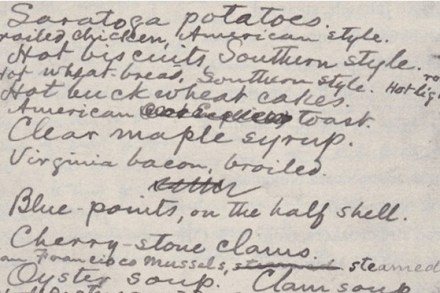 Saratoga potatoes.
roiled chicken, American style.
Hot biscuits, Southern style.
Hot wheat-bread, Southern style. Hot lig
Hot buckwheat cakes.
American toast.
Clear maple syrup.
Virginia bacon, broiled.
Blue-points, on the half shell.
Cherry-stone clams.
an Francisco mussels, steamed
Oyster soup. Clam soup.